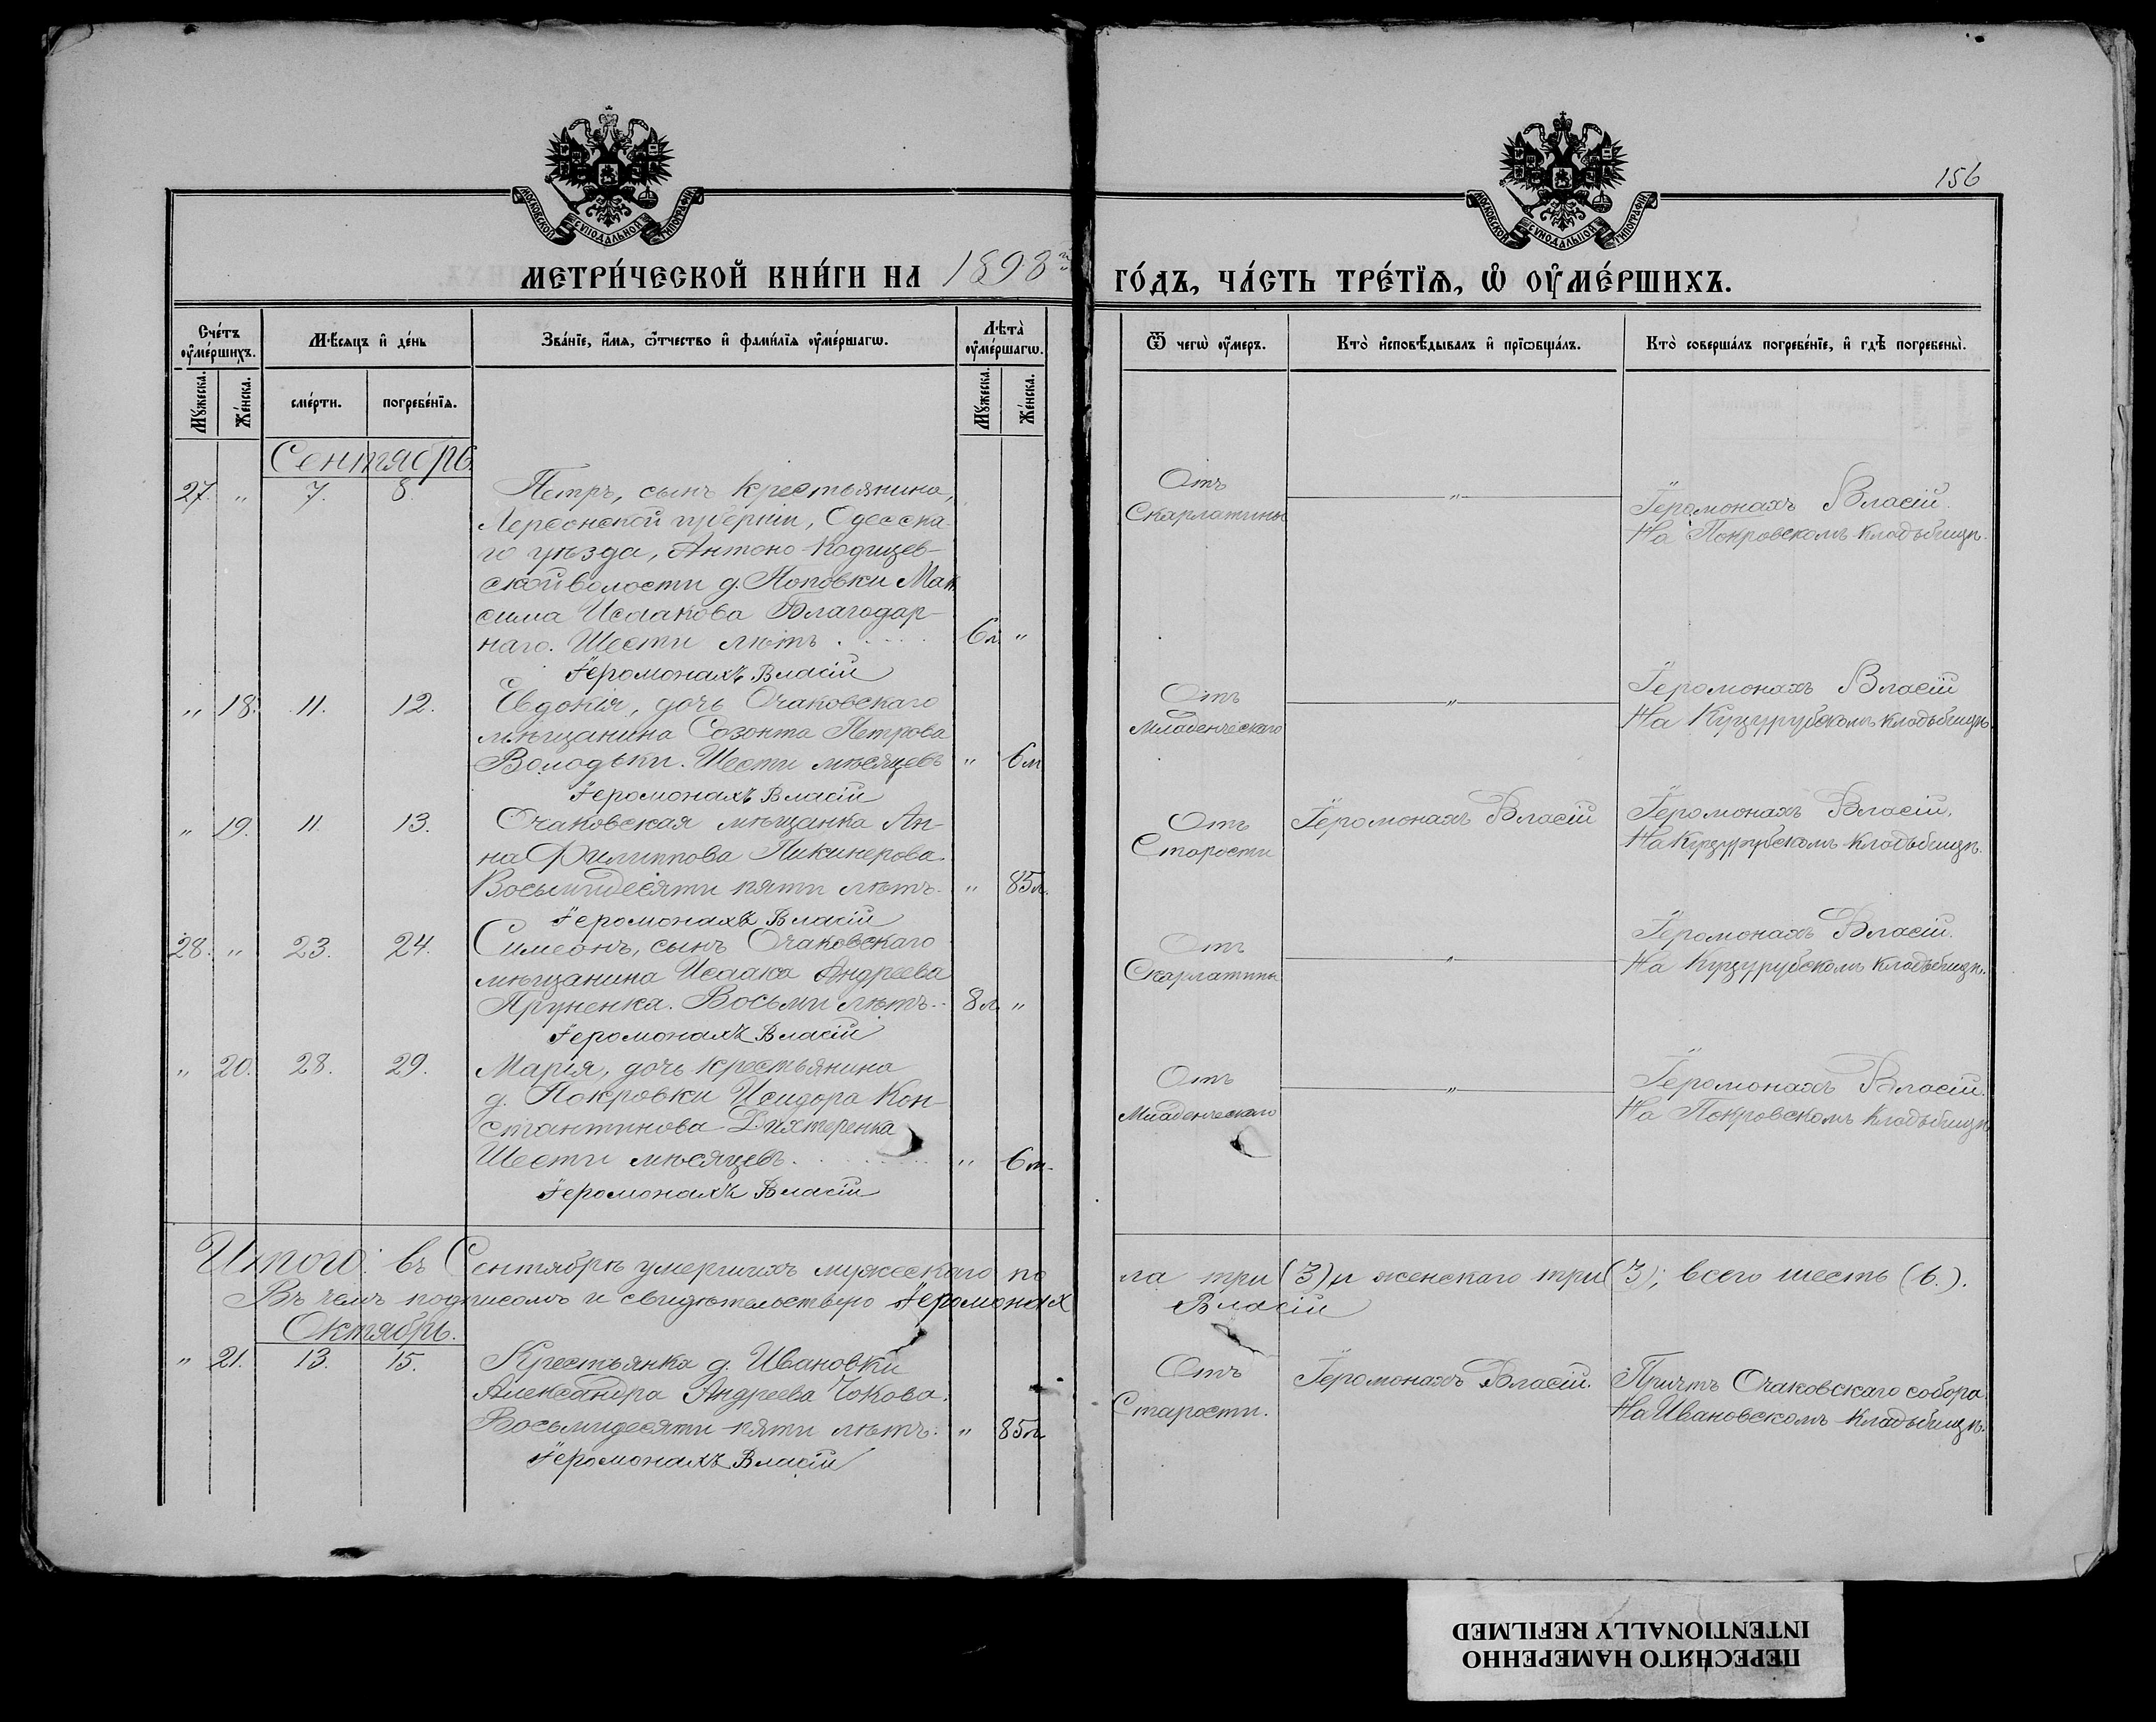 156
МОСКОВСКОЙ СУНОДАЛЬНОЙ ТИПОГРАФІИ
МОСКОВСКОЙ СУНОДАЛЬНОЙ ТИПОГРАФІИ
МЕТРИ́ЧЕСКОЙ КНИ́ГИ НА 1898й ГО́ДЪ, ЧА́СТЬ ТРЕ́ТІѦ, Ѡ҆ ОУ҆МЕ́РШИХЪ.
Сче́тъ оу҆ме́ршихъ.
Мѣ́сѧцъ и҆ де́нь
Зва́нїе, и҆́мѧ, ѻ҆́тчество и҆ фами́лїѧ оу҆ме́ршагѡ.
Лѣта̀ оу҆ме́ршагѡ.
Ѿ чегѡ̀ оу҆́меръ.
Кто̀ и҆сповѣ́дывалъ и҆ прїѡбща́лъ.
Кто̀ соверша́лъ погребе́нїе, и҆ гдѣ̀ погребены̀.
Мꙋ́жеска.
Же́нска.
сме́рти.
погребе́нїѧ.
Мꙋ́жеска.
Же́нска.
Сентябрь
27. " 7. 8. Петръ, сынъ крестьянина,
Херсонской губерніи, Одесска-
го уѣзда, Антоно-Кодинцев-
ской волости д. Поповки Мак-
сима Исаакова Благодар-
наго. Шести лѣтъ . . . . . 6л. "
Іеромонахъ Власій
Отъ
Скарлатины
"
Іеромонахъ Власій.
На Покровскомъ кладбищѣ.
" 18. 11. 12. Евдокія, дочь Очаковскаго
мѣщанина Созонта Петрова
Володьки. Шести мѣсяцевъ " 6м
Іеромонахъ Власій
Отъ
Младенческаго
"
Іеромонахъ Власій
На Куцурубскомъ кладбищѣ.
" 19. 11. 13. Очаковская мѣщанка Ан-
на Филиппова Пикинерова.
Восьмидесяти пяти лѣтъ. " 85л.
Іеромонахъ Власій
Отъ
Старости
Іеромонахъ Власій
Іеромонахъ Власій,
На Куцурубскомъ кладбищѣ.
28. " 23. 24. Симеонъ, сынъ Очаковскаго
мѣщанина Исаака Андреева
Пруненка. Восьми лѣтъ.. 8л. "
Іеромонахъ Власій
Отъ
Скарлатины
"
Іеромонахъ Власій.
На Куцурубскомъ кладбищѣ.
" 20. 28. 29. Марія, дочь крестьянина
д. Покровки Исидора Кон-
стантинова Дихтеренка
Шести мѣсяцевъ. . . . . . " 6м.
Іеромонахъ Власій
Отъ
Младенческаго
"
Іеромонахъ Власій.
На Покровскомъ кладбищѣ
Итого: въ Сентябрѣ умершихъ мужескаго по ла три (3) и женскаго три (3); всего шесть (6.).
Въ чемъ подписомъ и свидѣтельствую Іеромонах Власій
Октябрь.
" 21. 13. 15. Крестьянка д. Ивановки
Александра Андреева Чокова.
Восьмидесяти пяти лѣтъ: " 85л
Іеромонахъ Власій
Отъ
Старости.
Іеромонахъ Власій.
Причтъ Очаковскаго собора.
На Ивановскомъ кладбищѣ.
ПЕРЕСНЯТО НАМЕРЕННО
INTENTIONALLY REFILMED